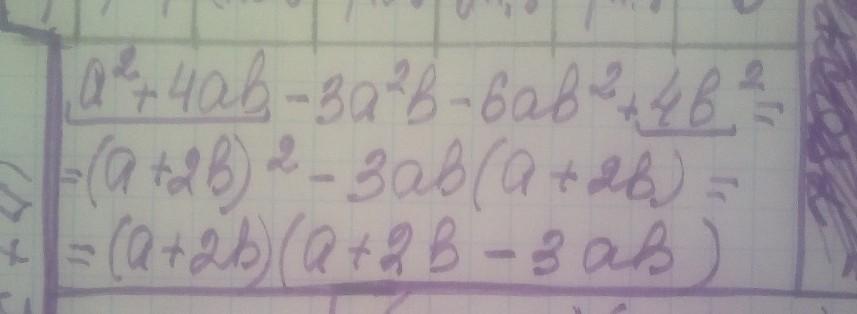 a² + 4ab - 3a²b - 6ab² + 4b² =
= (a + 2b)² - 3ab(a + 2b) =
= (a + 2b)(a + 2b - 3ab)